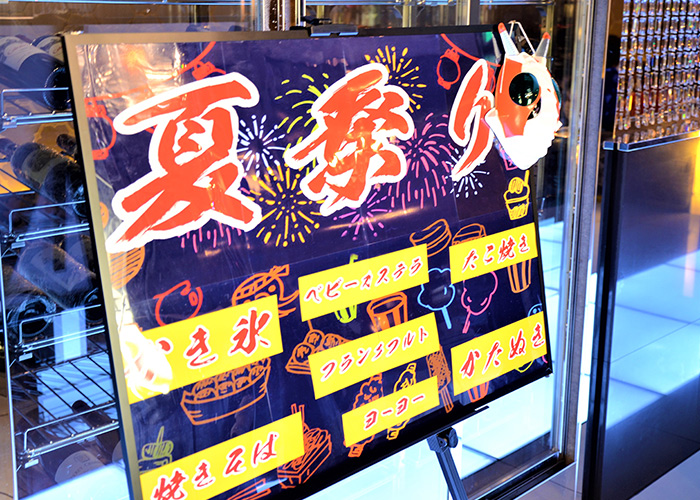 夏祭り
かき氷
ベビーカステラ
たこ焼き
フランクフルト
かたぬき
焼きそば
ヨーヨー